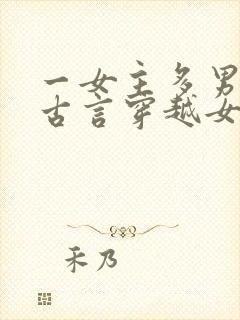 一女主多男
古言穿越女
禾乃